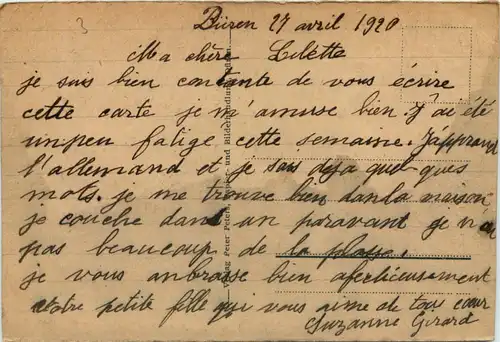 3
Büren 27 avril 1920
Ma chère Lilette
je suis bien contante de vous écrire
cette carte je m'amuse bien. J'ai été
un peu fatigé cette semaine. J'apprand
l'allemand et je sais deja quelques
mots. je me trouve bien dan la maison
je couche dans un paravant je n'ai
pas beaucoup de la place.
je vous anbrasse bien afectieusement
votre petite fille qui vous aime de tous cœur
Suzanne Girard
Verlag Peter Peter und Bilderhandlung